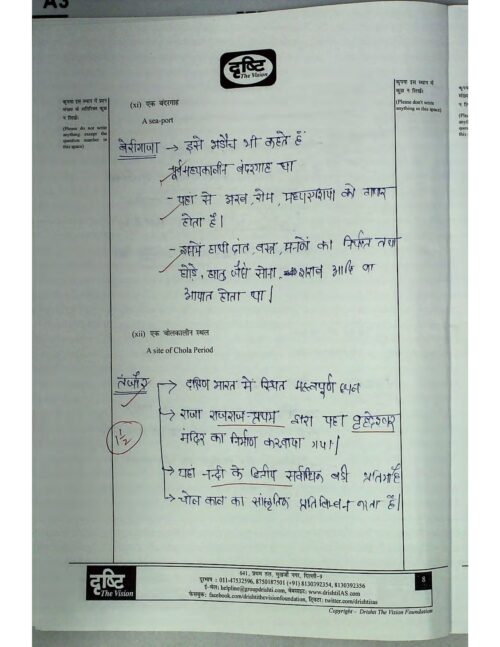 A3
दृष्टि
The Vision
कृपया इस स्थान में प्रश्न संख्या के अतिरिक्त कुछ न लिखें।
(Please do not write anything except the question number in this space)
कृपया इस स्थान में कुछ न लिखें।
(Please don't write anything in this space)
(xi) एक बंदरगाह
A sea-port
बेरीगाजा → इसे भड़ौच भी कहते हैं
पूर्वमध्यकालीन बंदरगाह था
- यहा से अरब, रोम, मध्यएशिया को व्यापार
होता है।
- इसमें हाथी दांत, वस्त्र, मसालों का निर्यात तथा
घोड़े, धातु जैसे सोना, शराब आदि का
आयात होता था।
(xii) एक चोलकालीन स्थल
A site of Chola Period
तंजौर → दक्षिण भारत में स्थित महत्वपूर्ण स्थल
→ राजा राजराज-प्रथम द्वारा यहा वृहदेश्वर
मंदिर का निर्माण करवाया गया।
1 1/2
→ यहां नन्दी के द्वितीय सर्वाधिक बड़ी प्रतिमा है
→ चोल काल का सांस्कृतिक प्रतिबिम्बन
दृष्टि
The Vision
641, प्रथम तल, मुखर्जी नगर, दिल्ली-9
दूरभाष : 011-47532596, 8750187501 (+91) 8130392354, 8130392356
ई-मेल: helpline@groupdrishti.com, वेबसाइट: www.drishtiIAS.com
फेसबुक: facebook.com/drishtithevisionfoundation, ट्विटर: twitter.com/drishtiias
8
Copyright - Drishti The Vision Foundation